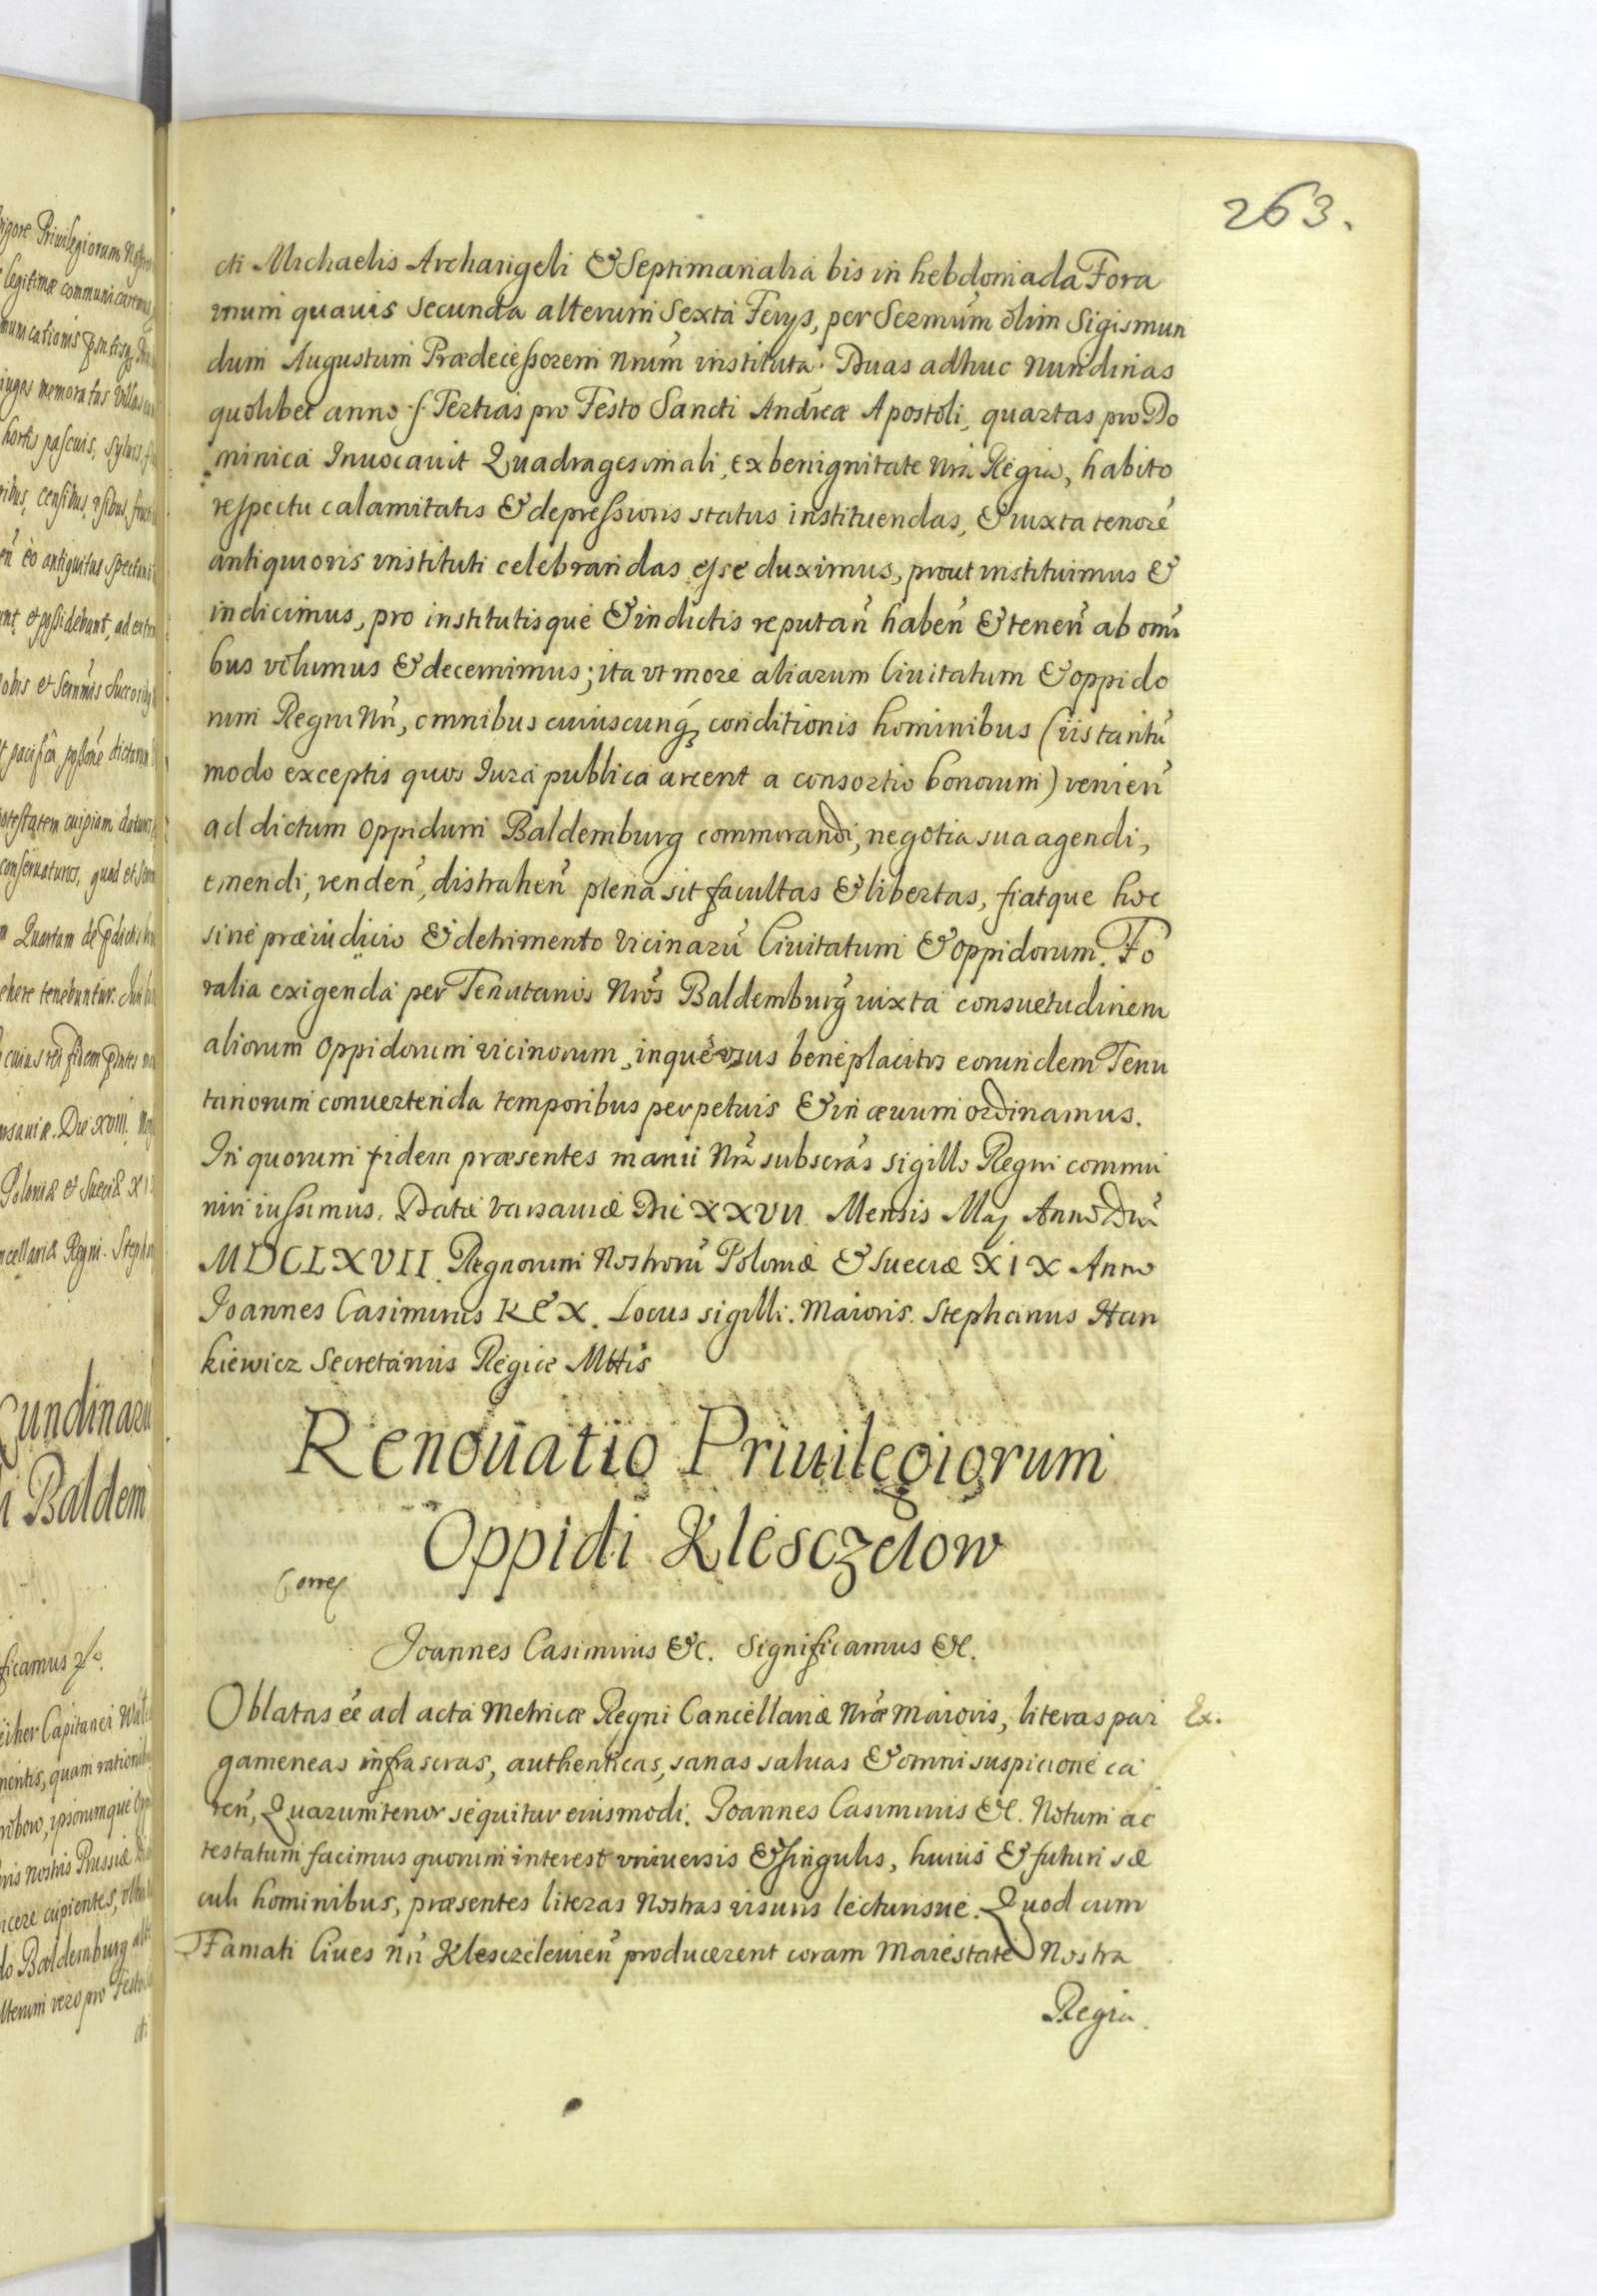 263.
cti Michaelis Archangeli & Septimanalia bis in hebdomada Fora
unum quauis secunda alterum Sexta Ferys, per Sermum olim Sigismun
dum Augustum Prædecessorem Nrum instituta. Duas adhuc Nundinas
quolibet anno .f. Tertias pro Festo Sancti Andreæ Apostoli, quartas pro Do
minica Inuocauit Quadragesimali, ex benignitate Nra Regia, habito
respectu calamitatis & depressionis status instituendas, & iuxta tenorē
antiquioris instituti celebrandas esse duximus, prout instituimus &
indicimus, pro institutisque & indictis reputan̄ haben̄ & tenen̄ ab omni
bus volumus & decernimus; ita vt more aliarum Ciuitatum & oppido
rum Regni Nri, omnibus cuiuscunq̢ conditionis hominibus (iis tantū
modo exceptis quos Iura publica arcent a consortio bonorum) venien̄
ad dictum oppidum Baldemburg commorandi, negotia sua agendi,
emendi, venden̄, distrahen̄ plena sit facultas & libertas, fiatque hoc
sine præiudicio & detrimento vicinarū Ciuitatum & oppidorum. Fo
ralia exigenda per Tenutarios Nros Baldemburg iuxta consuetudinem
aliorum oppidorum vicinorum, inque vsus beneplacitos eorundem Tenu
tariorum conuertenda temporibus perpetuis & in æuum ordinamus.
In quorum fidem præsentes manu Nra subscras sigillo Regni commu
niri iussimus. Datæ Varsauiæ Die XXVII Mensis May Anno Dni
MDCLXVII Regnorum Nostrorū Poloniæ & Sueciæ XIX Anno
Joannes Casimirus REX. Locus sigilli. Maioris. Stephanus Han
kiewicz Secretarius Regiæ Mttis
Renouatio Priuilegiorum
Oppidi Klesczelow
Joannes Casimirus &c. Significamus &c.
Oblatas eē ad acta Metricæ Regni Cancellariæ Nræ Maioris, literas par
Ex.
gameneas infrascras, authenticas, sanas saluas & omni suspicione ca
ren̄, Quarum tenor sequitur eiusmodi. Joannes Casimirus &c. Notum ac
testatum facimus quorum interest vniuersis & singulis, huius & futuri sæ
culi hominibus, præsentes literas Nostras visuris lecturisue. Quod cum
Famati Ciues Nri Klesczelewien̄ producerent coram Maiestate Nostra
Regia.